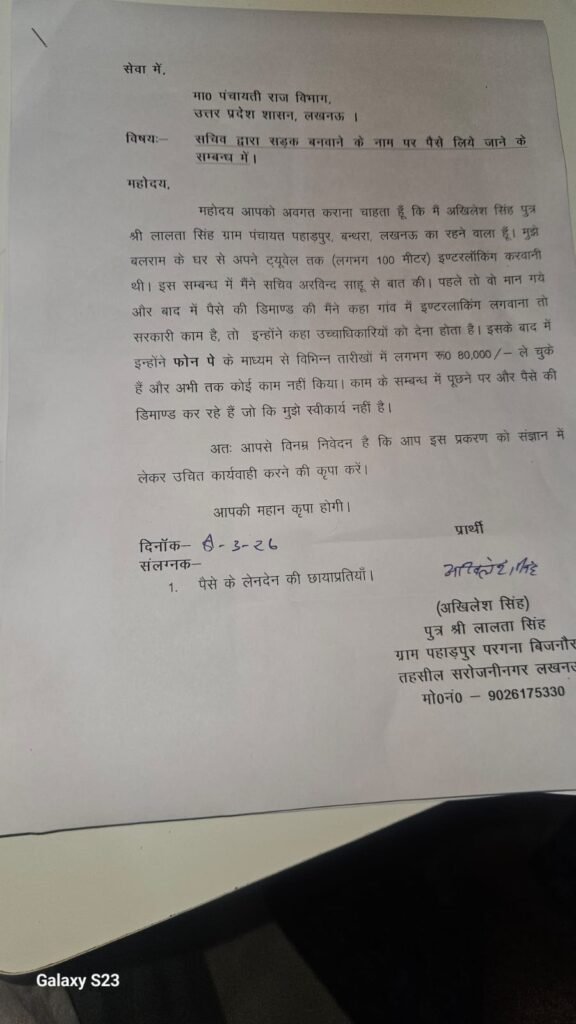 सेवा में,
मा0 पंचायती राज विभाग,
उत्तर प्रदेश शासन, लखनऊ ।
विषयः– सचिव द्वारा सड़क बनवाने के नाम पर पैसे लिये जाने के
सम्बन्ध में।
महोदय,
महोदय आपको अवगत कराना चाहता हूँ कि मैं अखिलेश सिंह पुत्र
श्री लालता सिंह ग्राम पंचायत पहाड़पुर, बन्थरा, लखनऊ का रहने वाला हूँ। मुझे
बलराम के घर से अपने ट्यूवेल तक (लगभग 100 मीटर) इण्टरलॉकिंग करवानी
थी। इस सम्बन्ध में मैंने सचिव अरविन्द साहू से बात की। पहले तो वो मान गये
और बाद में पैसे की डिमाण्ड की मैंने कहा गांव में इण्टरलाकिंग लगवाना तो
सरकारी काम है, तो इन्होंने कहा उच्चाधिकारियों को देना होता है। इसके बाद में
इन्होंने फोन पे के माध्यम से विभिन्न तारीखों में लगभग रू0 80,000/– ले चुके
हैं और अभी तक कोई काम नहीं किया। काम के सम्बन्ध में पूछने पर और पैसे की
डिमाण्ड कर रहे हैं जो कि मुझे स्वीकार्य नहीं है।
अतः आपसे विनम्र निवेदन है कि आप इस प्रकरण को संज्ञान में
लेकर उचित कार्यवाही करने की कृपा करें।
आपकी महान कृपा होगी।
प्रार्थी
दिनॉक– -3-26
संलग्नक–
1. पैसे के लेनदेन की छायाप्रतियाँ।
अखिलेश सिंह
(अखिलेश सिंह)
पुत्र श्री लालता सिंह
ग्राम पहाड़पुर परगना बिजनौर
तहसील सरोजनीनगर लखनऊ
मो0नं0 – 9026175330
Galaxy S23